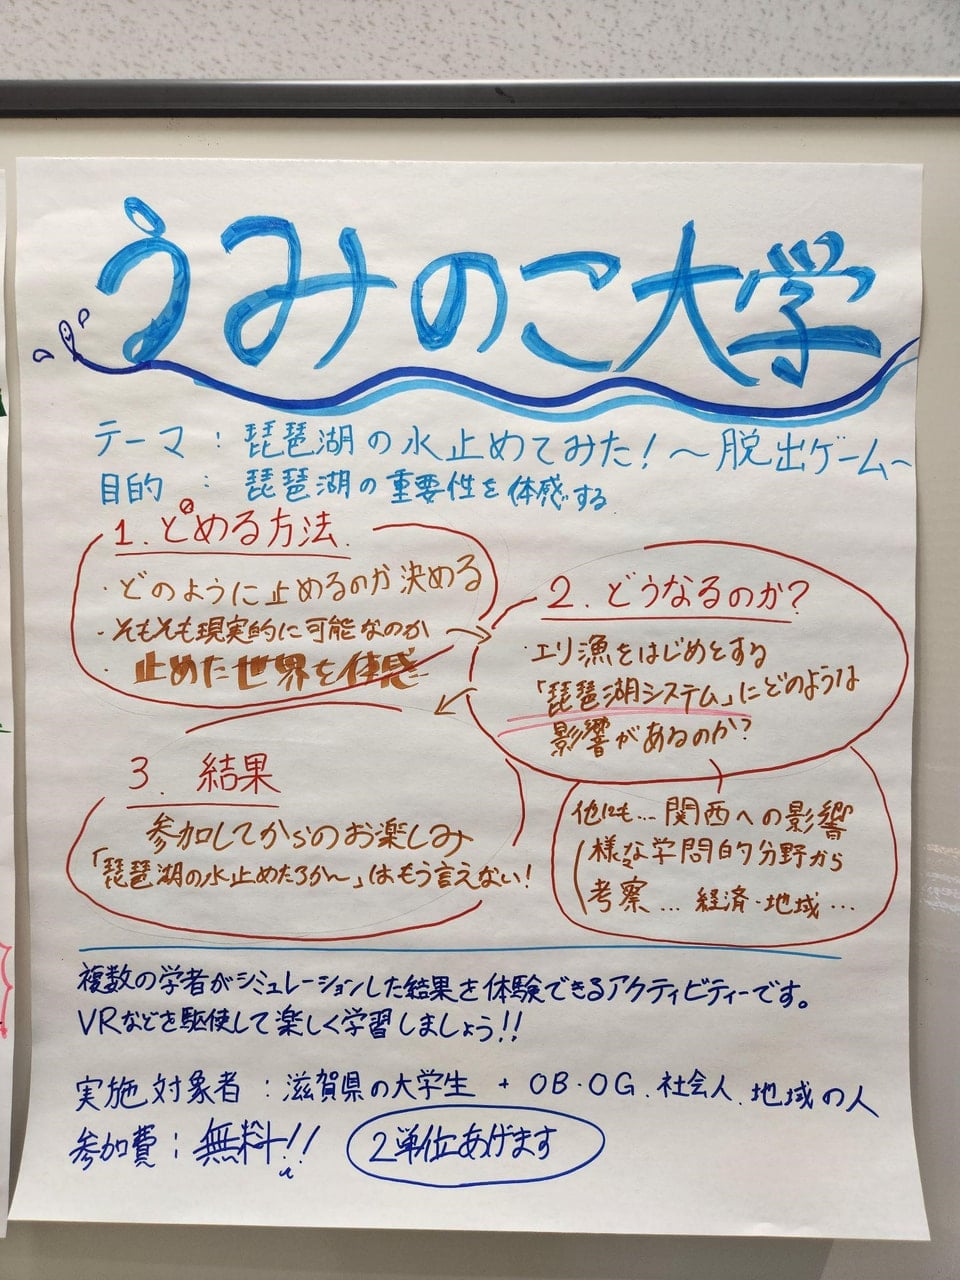 うみのこ大学
テーマ : 琵琶湖の水止めてみた!〜脱出ゲーム〜
目的 : 琵琶湖の重要性を体感する
1. とめる方法
・どのように止めるのか決める
・そもそも現実的に可能なのか
・止めた世界を体感
2. どうなるのか?
・エリ漁をはじめとする
「琵琶湖システム」にどのような
影響があるのか?
3. 結果
参加してからのお楽しみ
「琵琶湖の水止めたろか〜」はもう言えない!
他にも… 関西への影響
様々な学問的分野から
考察 … 経済・地域 …
複数の学者がシミュレーションした結果を体験できるアクティビティーです。
VRなどを駆使して楽しく学習しましょう!!
実施対象者 : 滋賀県の大学生 + OB・OG、社会人、地域の人
参加費 : 無料!! 2単位あげます